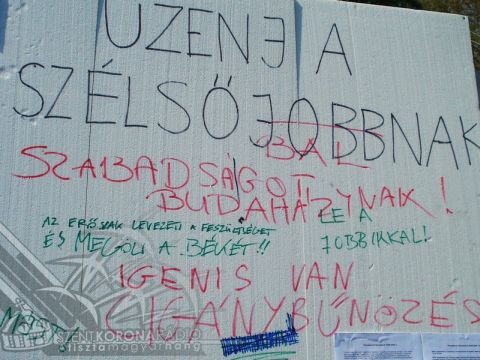 ÜZENJ A
SZÉLSŐJOBBNAK
BAL
SZABADSÁGOT
BUDAHÁZYNAK!
AZ ERŐSZAK LEVEZETI A FESZÜLTSÉGET
ÉS MEGÖLI A BÉKÉT!!
LE A
JOBBIKKAL!
IGENIS VAN
CIGÁNYBŰNÖZÉS
SZENTKORONARÁDIÓ
tisztamagyarhang